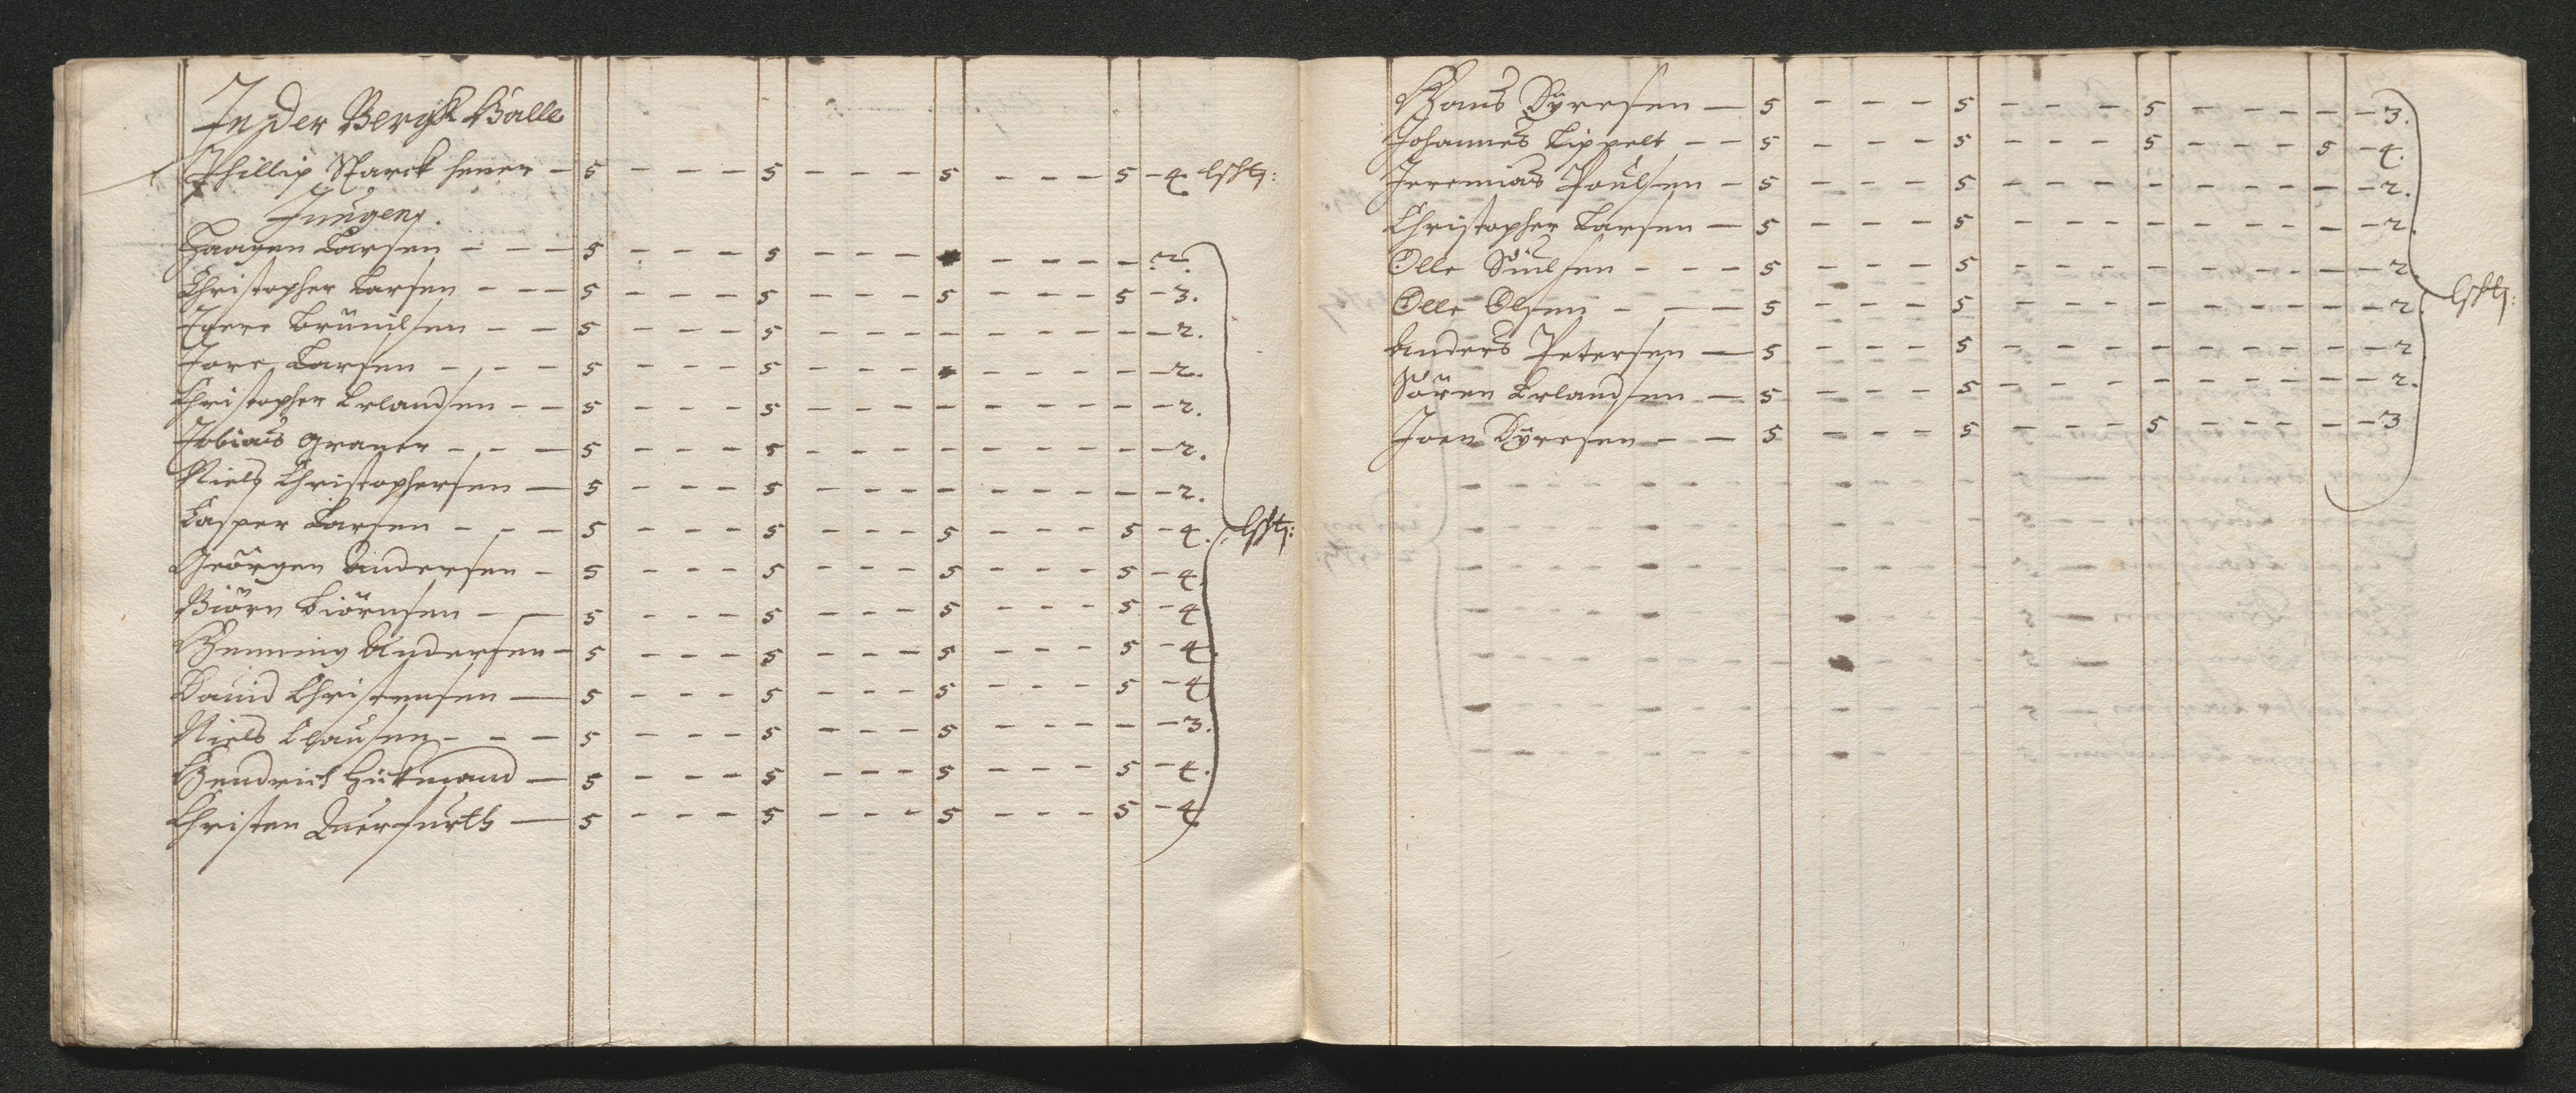 In der Bergk Halle
Phillip Starck heuer — 5 - - - - 5 - - - - 5 - - - 5 - 4 lsht:
Jungens.
Haagen Larsen - - - 5 - - - - 5 - - - - - - - - 2.
Christopher Larsen - - - 5 - - - - 5 - - - - 5 - - - 5 - 3.
- - 5 - - - - 5 - - - - - - - - - 2.
Tore Larsen - - - 5 - - - - 5 - - - - - - - - 2.
Christopher Erlandsen - - 5 - - - 5 - - - - - - - - - 2.
Tobias Graner - - - 5 - - - 5 - - - - - - - - - 2.
Niels Christophersen — 5 - - - 5 - - - - - - - - - 2.
Casper Larsen - - - 5 - - - 5 - - - 5 - - - 5 - 4. lsht:
Geörgen Andersen - 5 - - - 5 - - - 5 - - - 5 - 4.
Biörn Biörnsen - — 5 - - - 5 - - - 5 - - - 5 - 4
Henning Andersen - 5 - - - 5 - - - 5 - - - 5 - 4
Dauid Christensen — 5 - - - 5 - - - 5 - - - 5 - 4
Niels Clausen - - - 5 - - - 5 - - - 5 - - - - - 3.
Hendrich Hütmand — 5 - - - 5 - - - 5 - - - 5 - 4.
Christen Querfurth — 5 - - - 5 - - - 5 - - - 5 - 4
Hans Dÿresen — 5 - - - 5 - - - 5 - - - - - - 3.
Johannes Lippelt - - 5 - - - 5 - - - 5 - - - 5 - 4.
Jeremias Poulsen - 5 - - - 5 - - - - - - - - - 2.
Christopher Larsen — 5 - - - 5 - - - - - - - - - 2.
Olle - - - 5 - - - 5 - - - - - - - - - 2
Olle Olsen - - — 5 - - - 5 - - - - - - - - - 2. lsht:
Anders Petersen — 5 - - - 5 - - - - - - - - - 2
Sören Erlandsen — 5 - - - 5 - - - - - - - - - 2.
Joen Dÿresen - — 5 - - - 5 - - - 5 - - - - - 3